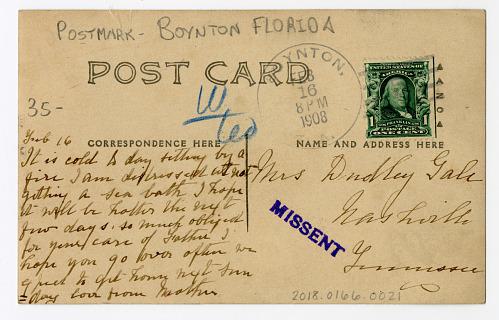 POSTMARK - BOYNTON FLORIDA
POST CARD
BOYNTON,
FEB
16
8 PM
1908
UNITED STATES OF AMERICA
1 FRANKLIN 1
POSTAGE
ONE CENT
35-
CORRESPONDENCE HERE
NAME AND ADDRESS HERE
Feb 16
It is cold to day sitting by a
fire I am depressed at not
getting a sea bath I hope
it will be hotter the next
few days. so much obliged
for your care of Father I
hope you go over often we
expect to get home next Sun
=day love from Mother
Mrs Dudley Gale
Nashville
Tennessee
MISSENT
2018.0166.0021